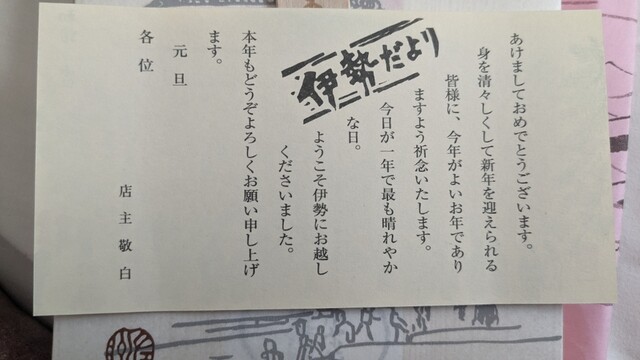 伊勢だより
あけましておめでとうございます。
身を清々しくして新年を迎えられる
皆様に、今年がよいお年であり
ますよう祈念いたします。
今日が一年で最も晴れやか
な日。
ようこそ伊勢にお越し
くださいました。
本年もどうぞよろしくお願い申し上げ
ます。
元旦
各位
店主敬白